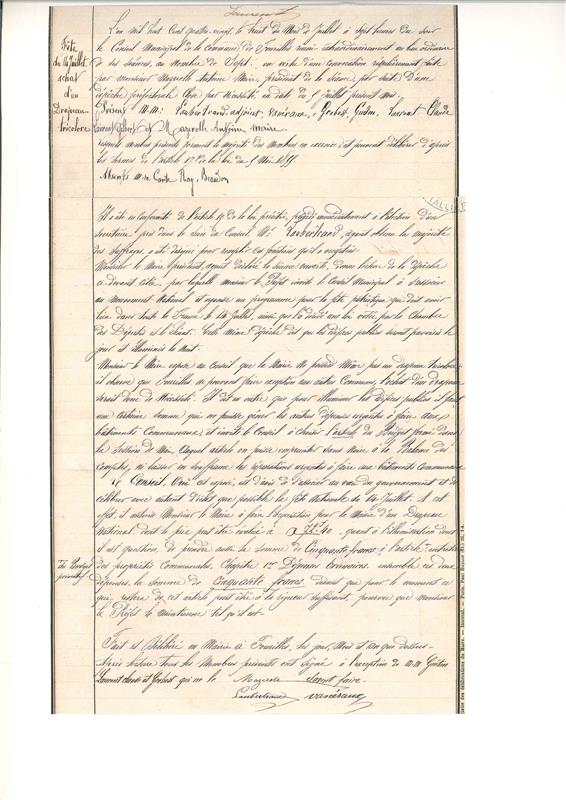 L'an mil huit cent quatre-vingt, le huit du mois de Juillet à sept heures du soir
le Conseil Municipal de la commune de Fouilles réuni extraordinairement au lieu ordinaire
de ses séances, au nombre de Sept, en vertu d'une convocation régulièrement faite
par monsieur Mazerolle Antoine Maire, président de la séance, par suite d'une
dépêche préfectorale en date du 5 Juillet présent mois,
Fête
du 14 juillet.
achat
d'un
Drapeau
tricolore
Présents M.M: Laubertrand, adjoint, Vanéraud, Grobost, Guitton, Laurent Claude
Laurent Gilbert et Mazerolle Antoine maire.
lesquels membres présents forment la majorité des membres en exercice, et peuvent délibérer d'après
les termes de l'article 17 de la loi du 5 Mai 1855.
Absents m.m Carte, Ray, Beaudon
Il a été en conformité de l'article 19 de la loi précitée, procédé immédiatement à l'élection d'un
Secrétaire pris dans le sein du Conseil. Mr. Laubertrand, ayant obtenu la majorité
des suffrages, a été désigné pour remplir ces fonctions qu'il a acceptées.
Monsieur le Maire, président, ayant déclaré la séance ouverte, donne lecture de la dépêche
ci-devant citée, par laquelle monsieur le Préfet invite le Conseil Municipal à s'associer
au mouvement National et organise un programme pour la fête patriotique qui doit avoir
lieu dans toute la France le 14 juillet, ainsi que l'a décidé une loi votée par la Chambre
des Députés et le Sénat. Cette même dépêche dit que les édifices publics seront pavoisés le
jour et illuminés la nuit.
Monsieur le Maire expose au conseil que la Mairie ne possède même pas un drapeau tricolore
il observe que Fouilles ne pouvant faire exception aux autres Communes, l'achat d'un drapeau
serait donc de nécessité. Il dit en outre que pour illuminer les édifices publics il faut
une certaine somme qui ne puisse gêner les autres dépenses urgentes à faire aux
bâtiments Communaux, et invite le Conseil à choisir l'article du Budget formé dans
la Session de Mai, duquel article on puisse emprunter sans nuire à la Balance des
comptes, ni laisser en souffrance les réparations urgentes à faire aux bâtiments Communaux
Le Conseil, Ouï cet exposé, est d'avis de s'associer au vœu du gouvernement et de
célébrer avec autant d'éclat que possible la fête Nationale du 14 Juillet. A cet
effet, il autorise Monsieur le Maire à faire l'acquisition pour la Mairie d'un Drapeau
National dont le prix peut être évalué à
quant à l'illumination dont
il est question de prendre aussi la somme de Cinquante francs à l'article: entretien
Vu Budget
primitif
des propriétés Communales, Chapitre 1er Dépenses ordinaires. ensemble ces deux
dépenses la somme de Cinquante francs, disant que pour le moment ce
qui restera de cet article peut être à la rigueur suffisant, pourvu que monsieur
le Préfet le maintienne tel qu'il est.
Fait et Délibéré en Mairie à Fouilles, les jour, Mois et an que dessus.
Après lecture tous les Membres présents ont signé à l'exception de m.m Guitton
Laurent claude et Grobost qui ne le savent faire.
Mazerolle
Laubertrand Vanéraud